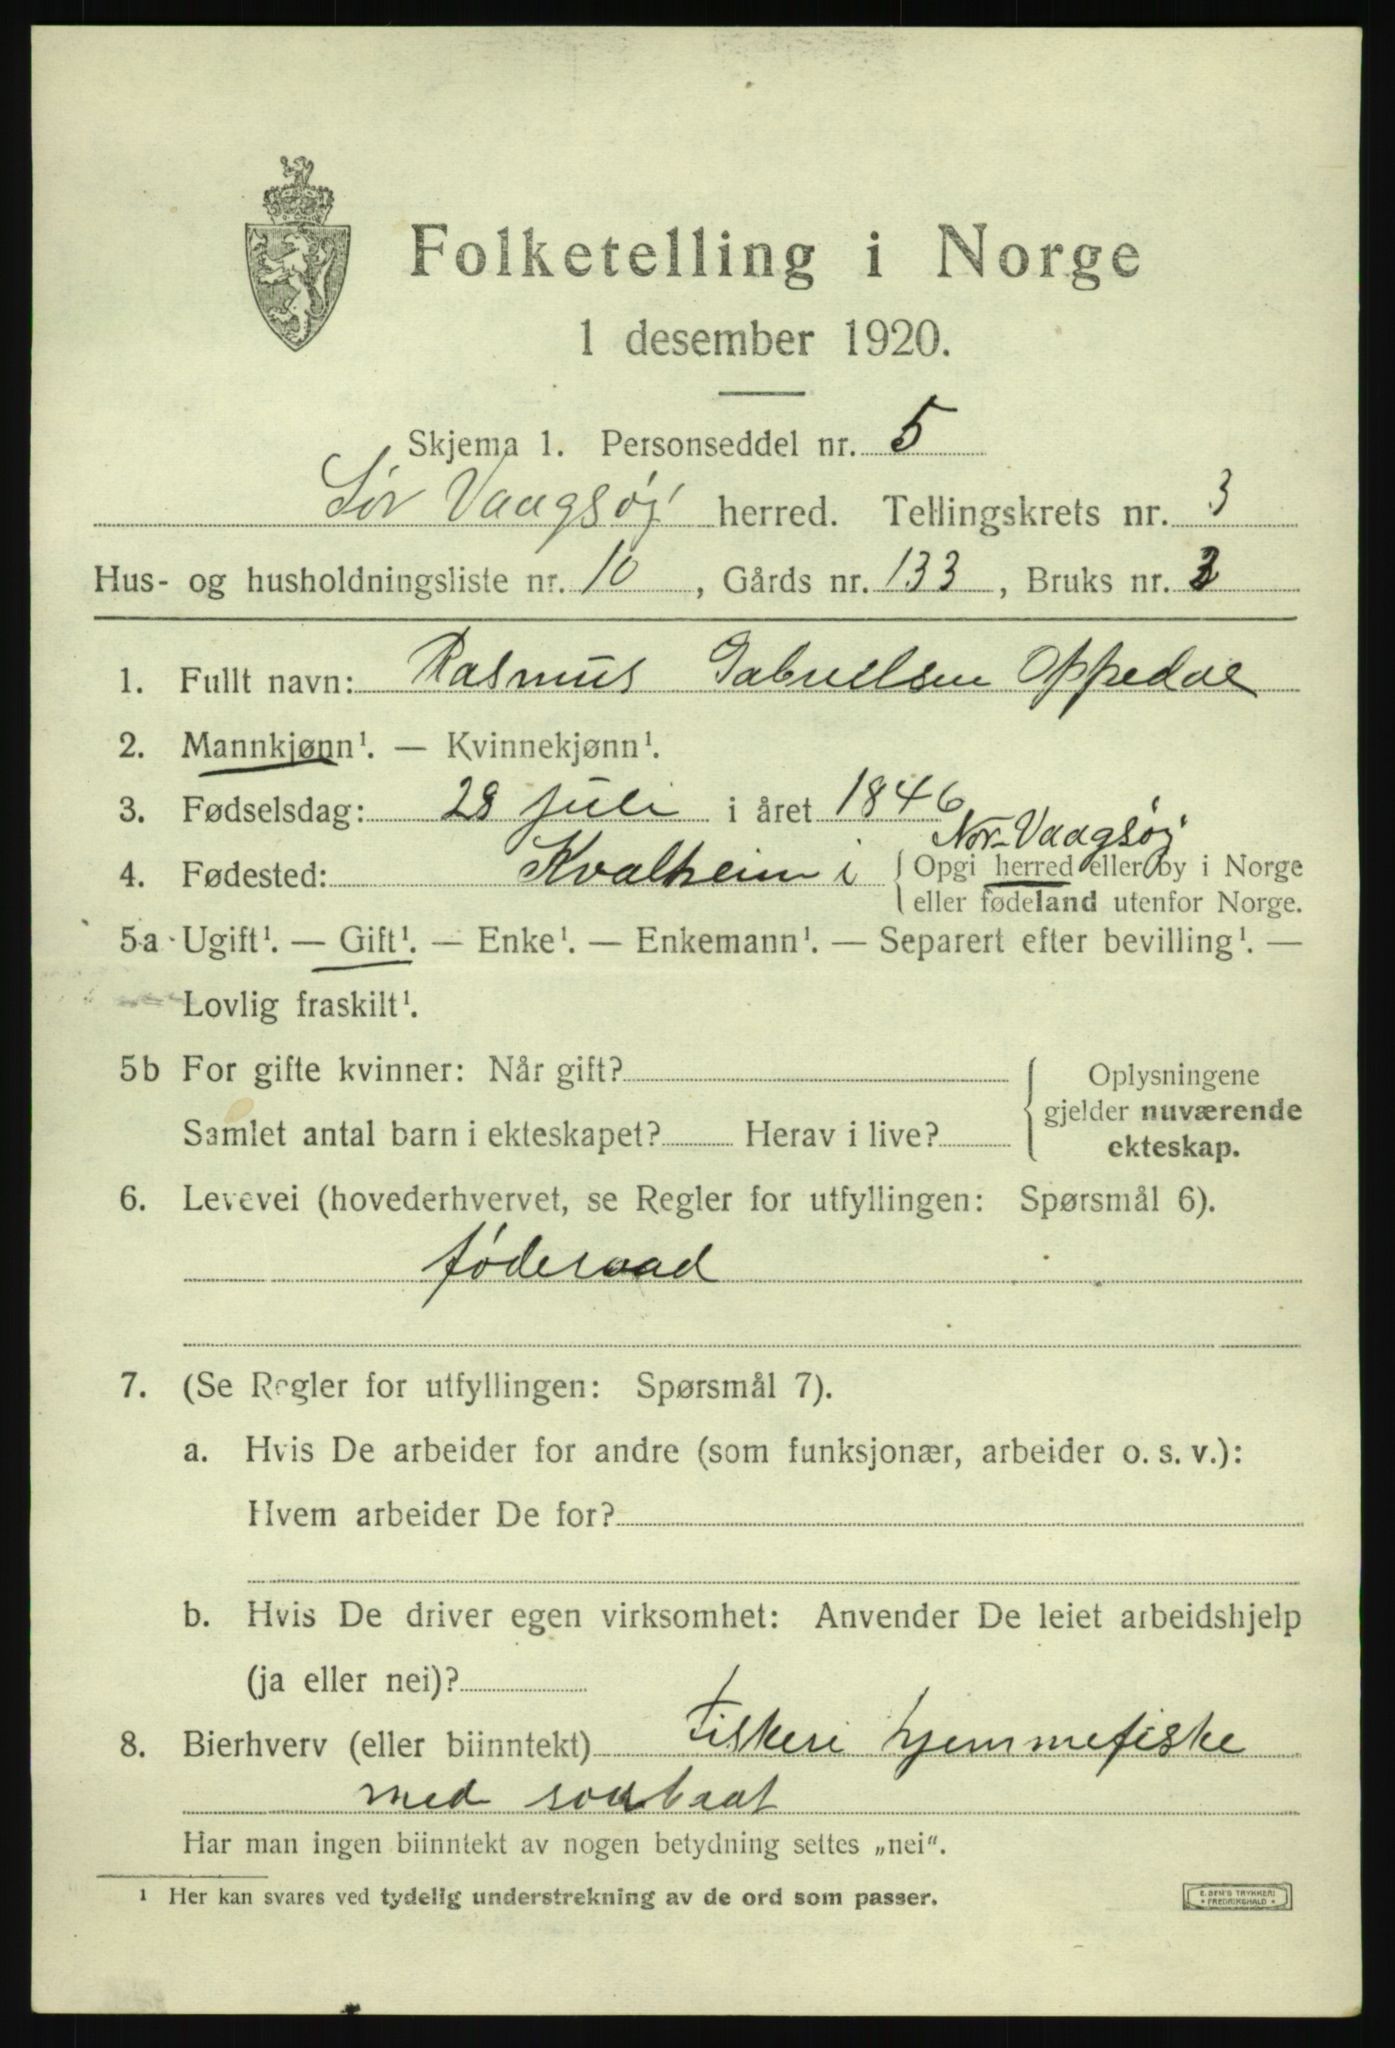 Folketelling i Norge
1 desember 1920.
Skjema 1. Personseddel nr. 5
Sør Vaagsøj herred. Tellingskrets nr. 3
Hus- og husholdningsliste nr. 10, Gårds nr. 133, Bruks nr.
1. Fullt navn: Rasmus Gabrielsen Oppedal
2. Mannkjønn¹. — Kvinnekjønn¹.
3. Fødselsdag: 28 juli i året 1846
Nor-Vaagsøj
4. Fødested: Kvalheim i { Opgi herred eller by i Norge
eller fødeland utenfor Norge.
5a Ugift¹. — Gift¹. — Enke¹. — Enkemann¹. — Separert efter bevilling¹. —
Lovlig fraskilt¹.
5b For gifte kvinner: Når gift? { Oplysningene
gjelder nuværende
Samlet antal barn i ekteskapet? Herav i live?
ekteskap.
6. Levevei (hovederhvervet, se Regler for utfyllingen: Spørsmål 6).
føderaad
7. (Se Regler for utfyllingen: Spørsmål 7).
a. Hvis De arbeider for andre (som funksjonær, arbeider o. s. v.):
Hvem arbeider De for?
b. Hvis De driver egen virksomhet: Anvender De leiet arbeidshjelp
(ja eller nei)?
8. Bierhverv (eller biinntekt) Fiskeri hjemmefiske
med
Har man ingen biinntekt av nogen betydning settes „nei“.
¹ Her kan svares ved tydelig understrekning av de ord som passer.
E. SEM'S TRYKKERI
FREDRIKSHALD